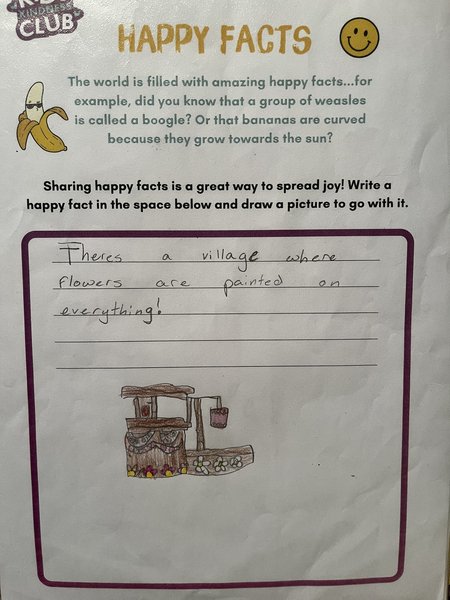 KINDNESS
CLUB
HAPPY FACTS
The world is filled with amazing happy facts...for
example, did you know that a group of weasles
is called a boogle? Or that bananas are curved
because they grow towards the sun?
Sharing happy facts is a great way to spread joy! Write a
happy fact in the space below and draw a picture to go with it.
Theres a village where
flowers are painted on
everything!